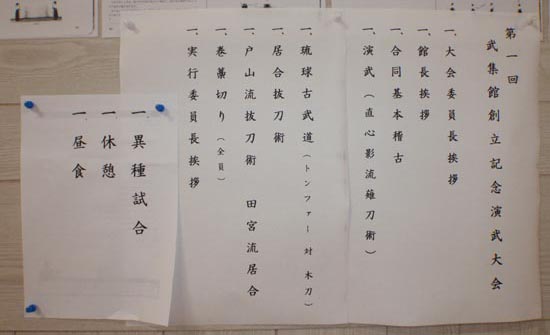 第一回
武集館創立記念演武大会
一、大会委員長挨拶
一、館長挨拶
一、合同基本稽古
一、演武（直心影流薙刀術）
一、琉球古武道（トンファー 対 木刀）
一、居合抜刀術
一、戸山流抜刀術 田宮流居合
一、巻藁切り（全員）
一、実行委員長挨拶
一、異種試合
一、休憩
一、昼食